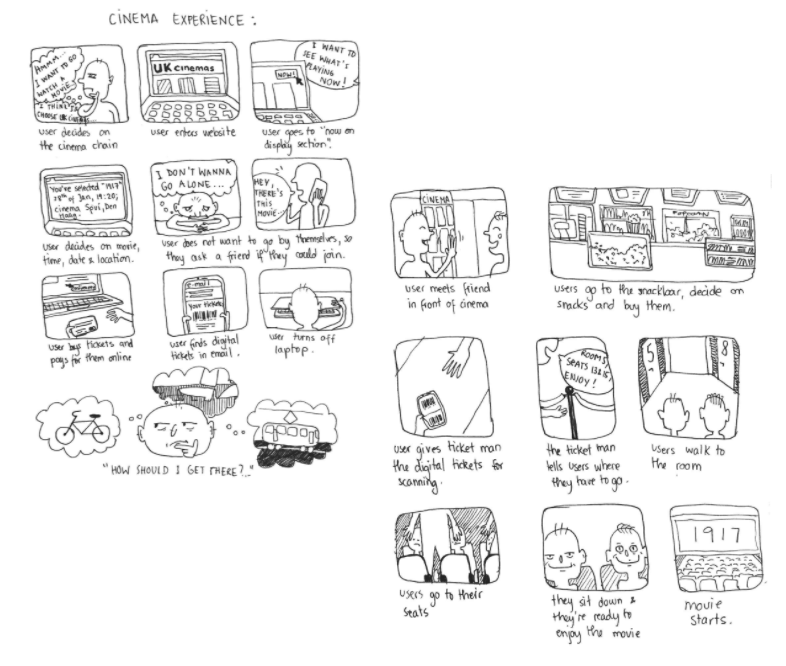 CINEMA EXPERIENCE :
HMMM...
I WANT TO GO
WATCH A
MOVIE.
I THINK I
CHOOSE UK CINEMAS
user decides on
the cinema chain
UK cinemas
user enters website
I WANT TO
SEE WHAT'S
PLAYING
NOW!
NOW!
user goes to "now on
display section".
You've selected "1917"
28th of Jan, 19:20;
cinema Spui, Den
Haag.
user decides on movie,
time, date & location.
I DON'T WANNA
GO ALONE....
HEY,
THERE'S
THIS
MOVIE..
user does not want to go by themselves, so
they ask a friend if they could join.
user buys tickets and
pays for them online
e-mail
Your tickets
user finds digital
tickets in email.
user turns off
laptop.
"HOW SHOULD I GET THERE?.."
CINEMA
user meets friend
in front of cinema
POPCORN
users go to the snackbar, decide on
snacks and buy them.
user gives ticket man
the digital tickets for
scanning.
ROOM 5,
SEATS 13&15,
ENJOY!
the ticket man
tells users where
they have to go.
5
8
users walk to
the room
users go to their
seats
they sit down &
they're ready to
enjoy the movie
1917
movie
starts.